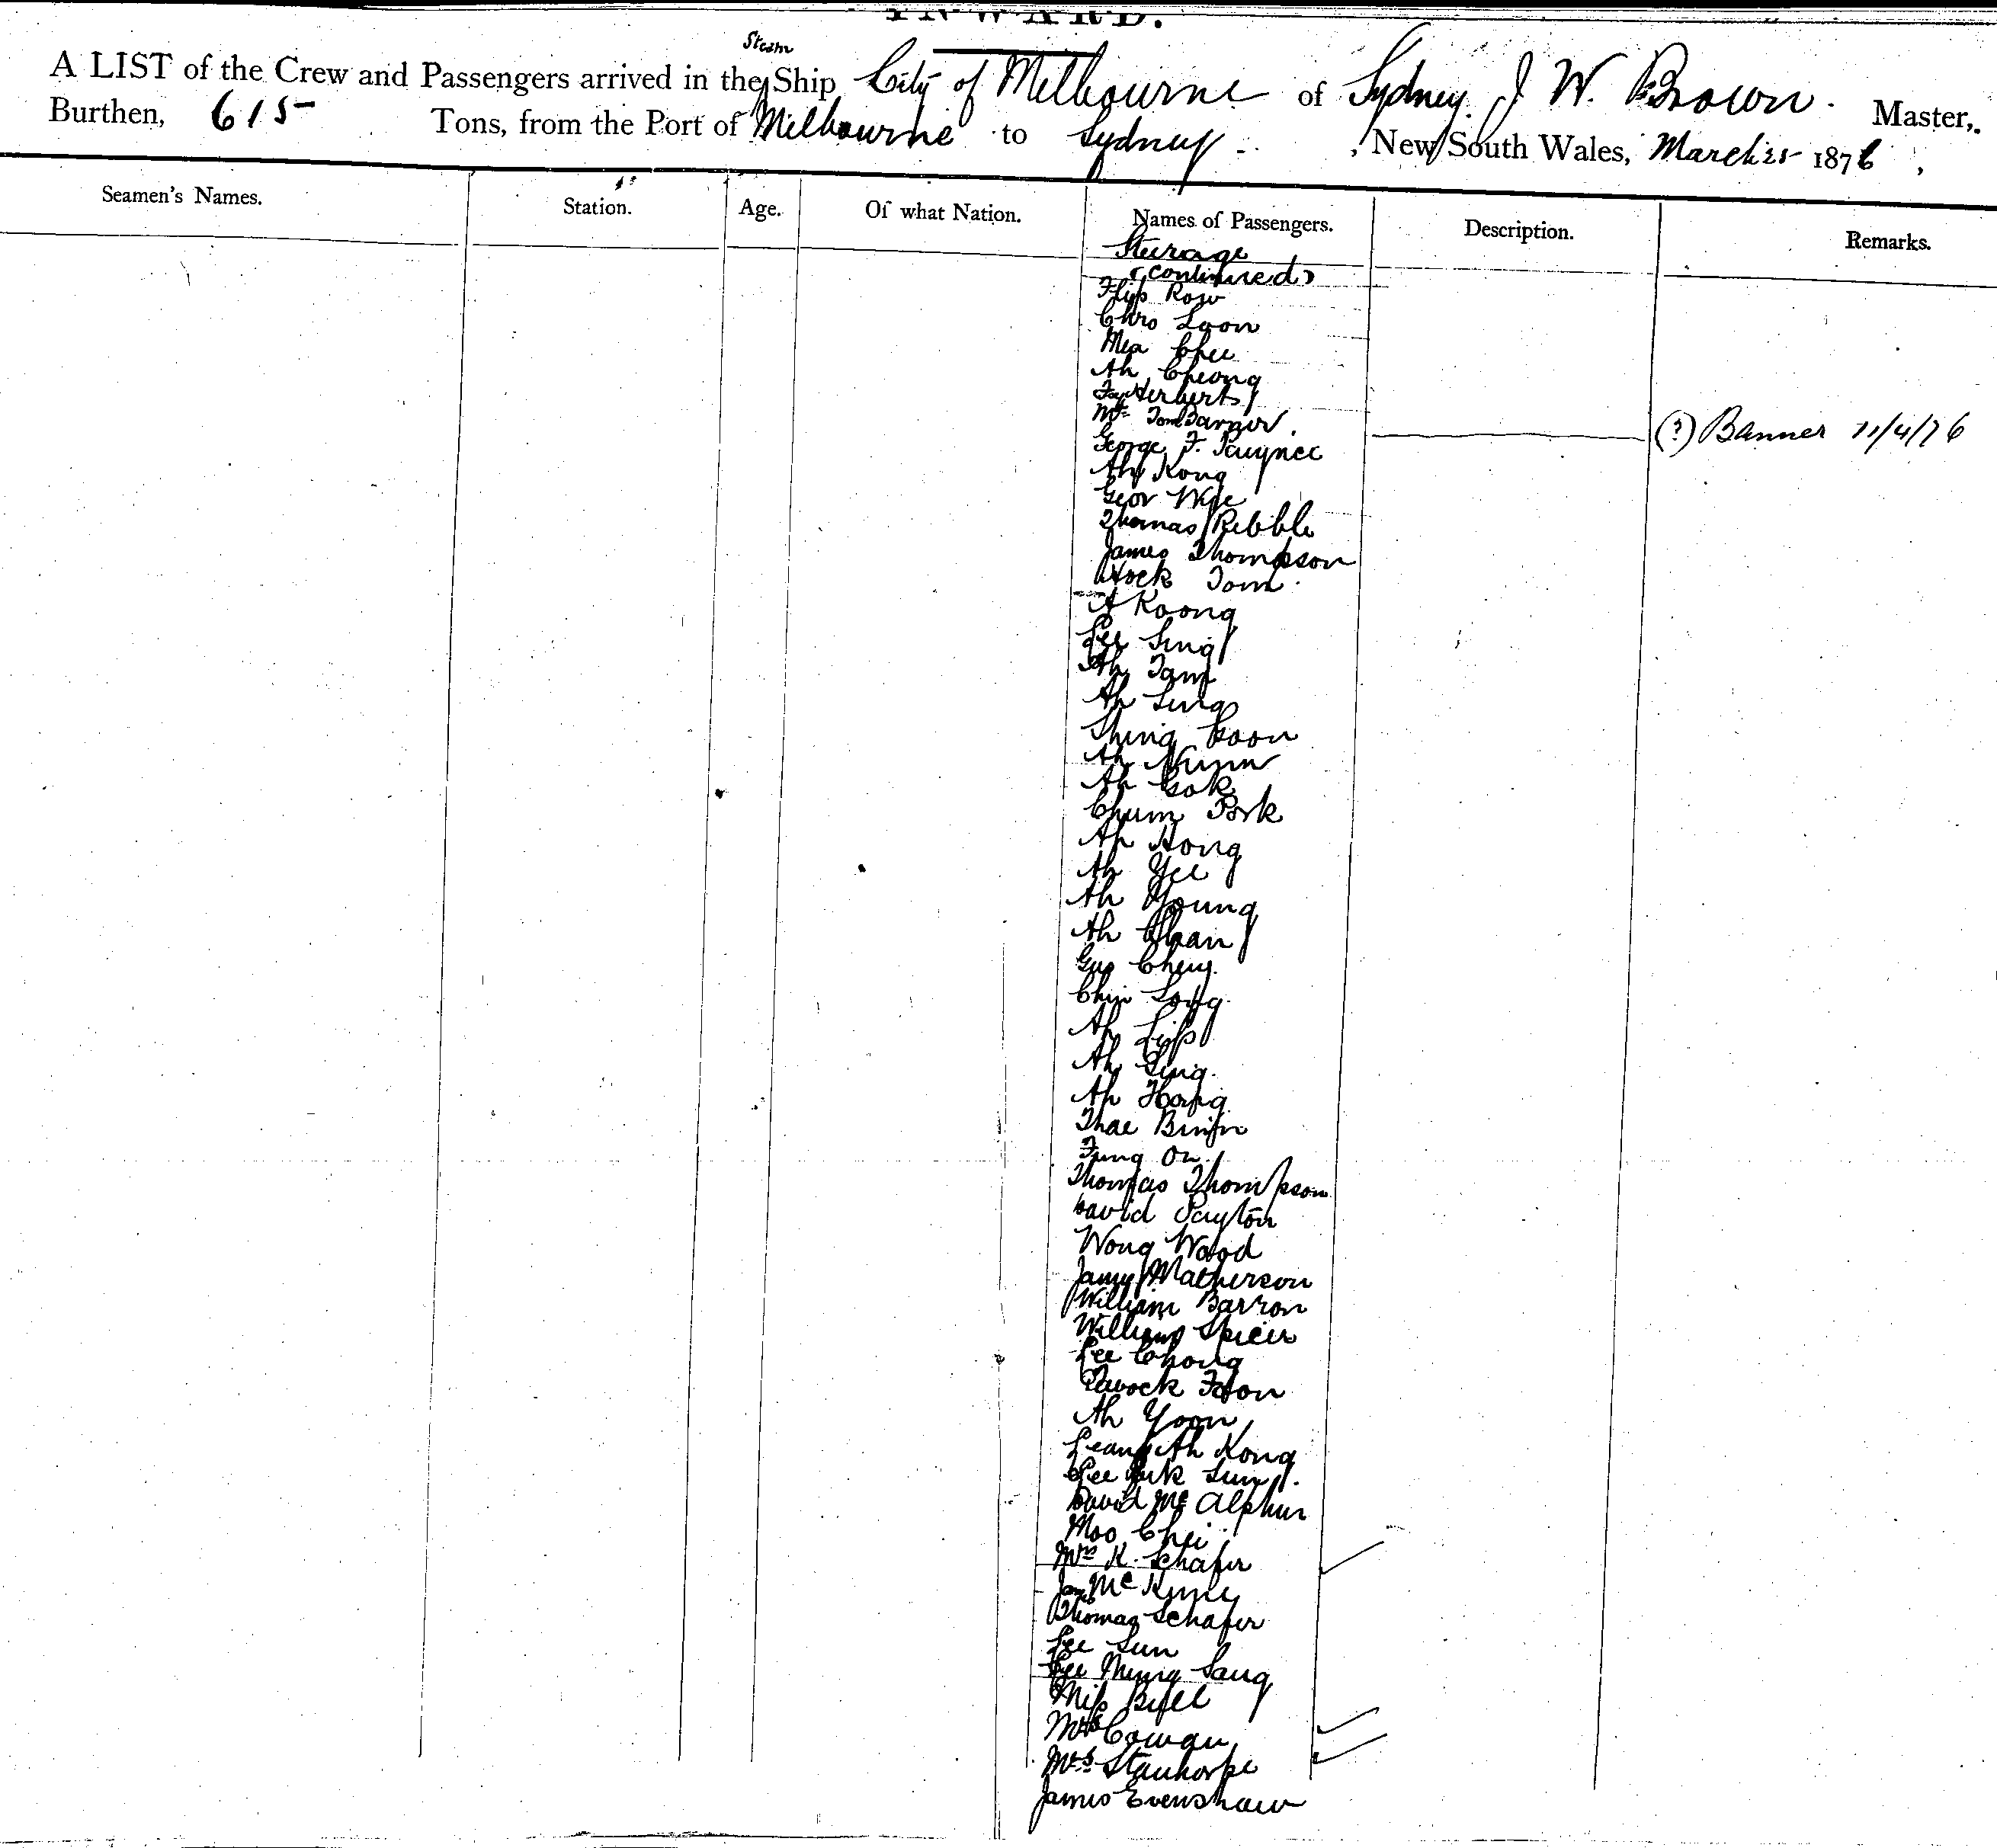 INWARD.
Steam
A LIST of the Crew and Passengers arrived in the Ship City of Melbourne of Sydney J W. Brown. Master,
Burthen, 615 Tons, from the Port of Melbourne to Sydney, New South Wales, March 25 1876,
Seamen's Names. Station. Age. Of what Nation. Names of Passengers. Description. Remarks.
Steerage
(continued)
Flip Row
Chro Loon
Mea Chee
Ah Cheong
Herbert
Mr Tom (?) Banner 11/4/76
George F.
Ah Kong
Geor Wise
Thomas Ribble
James Thompson
Tom
A Koong
Lee Sing
Ah Tam
Ah Sing
Shing Goon
Ah
Ah Gok
Chum Pork
Ah Hong
Ah Yee
Ah Young
Ah Chan
Chin Long
Ah Lip
Ah Sing
Ah Hong
Thae
Fung On
Thomas Thompson
David Payton
Wong Wood
Matherson
William Barron
William Spicer
Lee Chong
Foon
Ah Yoon
Leang Ah Kong
Lee Sun
David Mc
Moo Chei
Mrs K. Schafer
Mc
Thomas Schafer
Lee Sun
Lee Meung Sang
Miss
Mrs Cowan
Mrs Stanhorpe
James Evenshaw